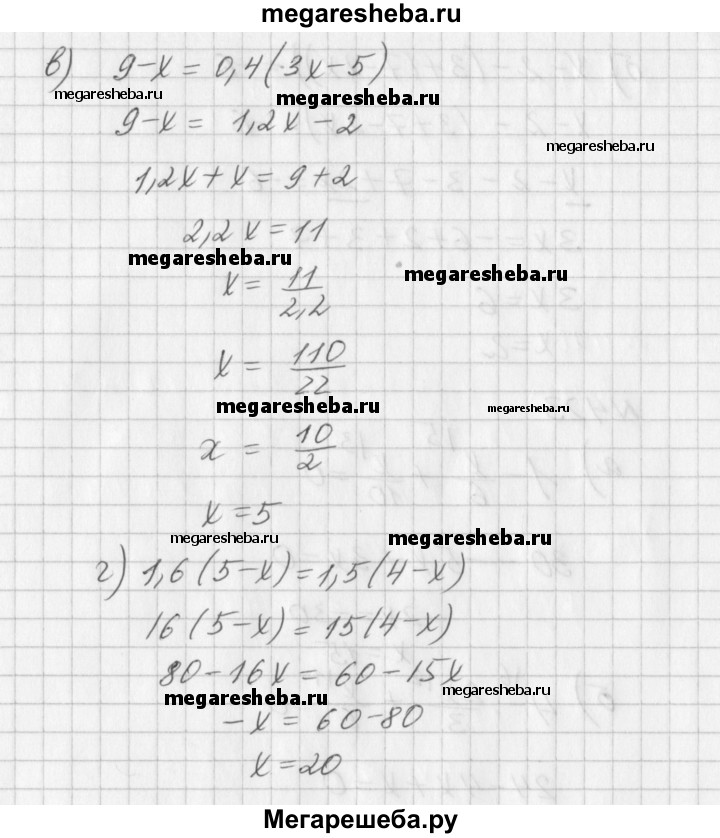 megaresheba.ru
в) 9-x = 0,4(3x-5)
megaresheba.ru megaresheba.ru
9-x = 1,2x-2
megaresheba.ru
1,2x+x = 9+2
2,2x=11
megaresheba.ru megaresheba.ru
x = 11/2,2
x = 110/22
megaresheba.ru megaresheba.ru
x = 10/2
x = 5
megaresheba.ru megaresheba.ru
г) 1,6(5-x)=1,5(4-x)
16(5-x)=15(4-x)
80-16x = 60-15x
megaresheba.ru megaresheba.ru
-x = 60-80
x = 20
Мегарешеба.ру